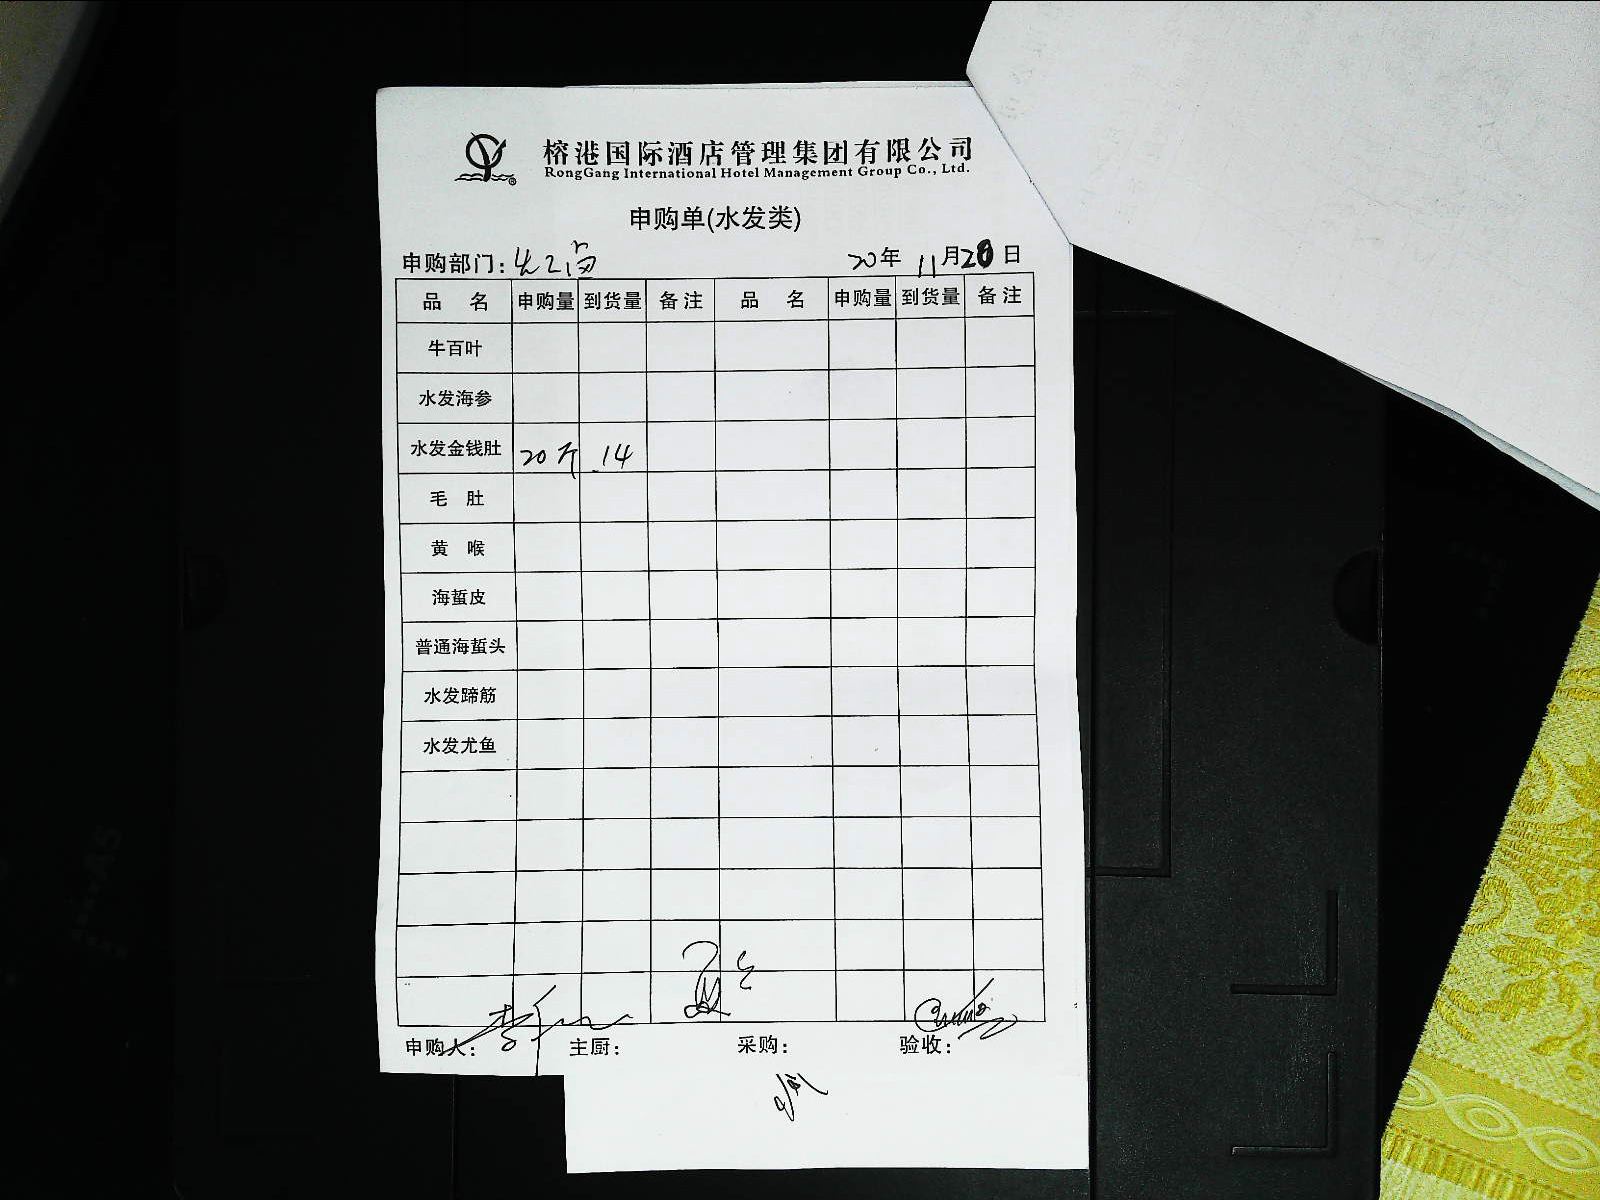 榕港国际酒店管理集团有限公司
RongGang International Hotel Management Group Co., Ltd.
申购单(水发类)
申购部门: 20年 11月28日
品 名 申购量 到货量 备注 品 名 申购量 到货量 备注
牛百叶
水发海参
水发金钱肚 20斤 14
毛 肚
黄 喉
海蜇皮
普通海蜇头
水发蹄筋
水发尤鱼
申购人: 主厨: 采购: 验收: